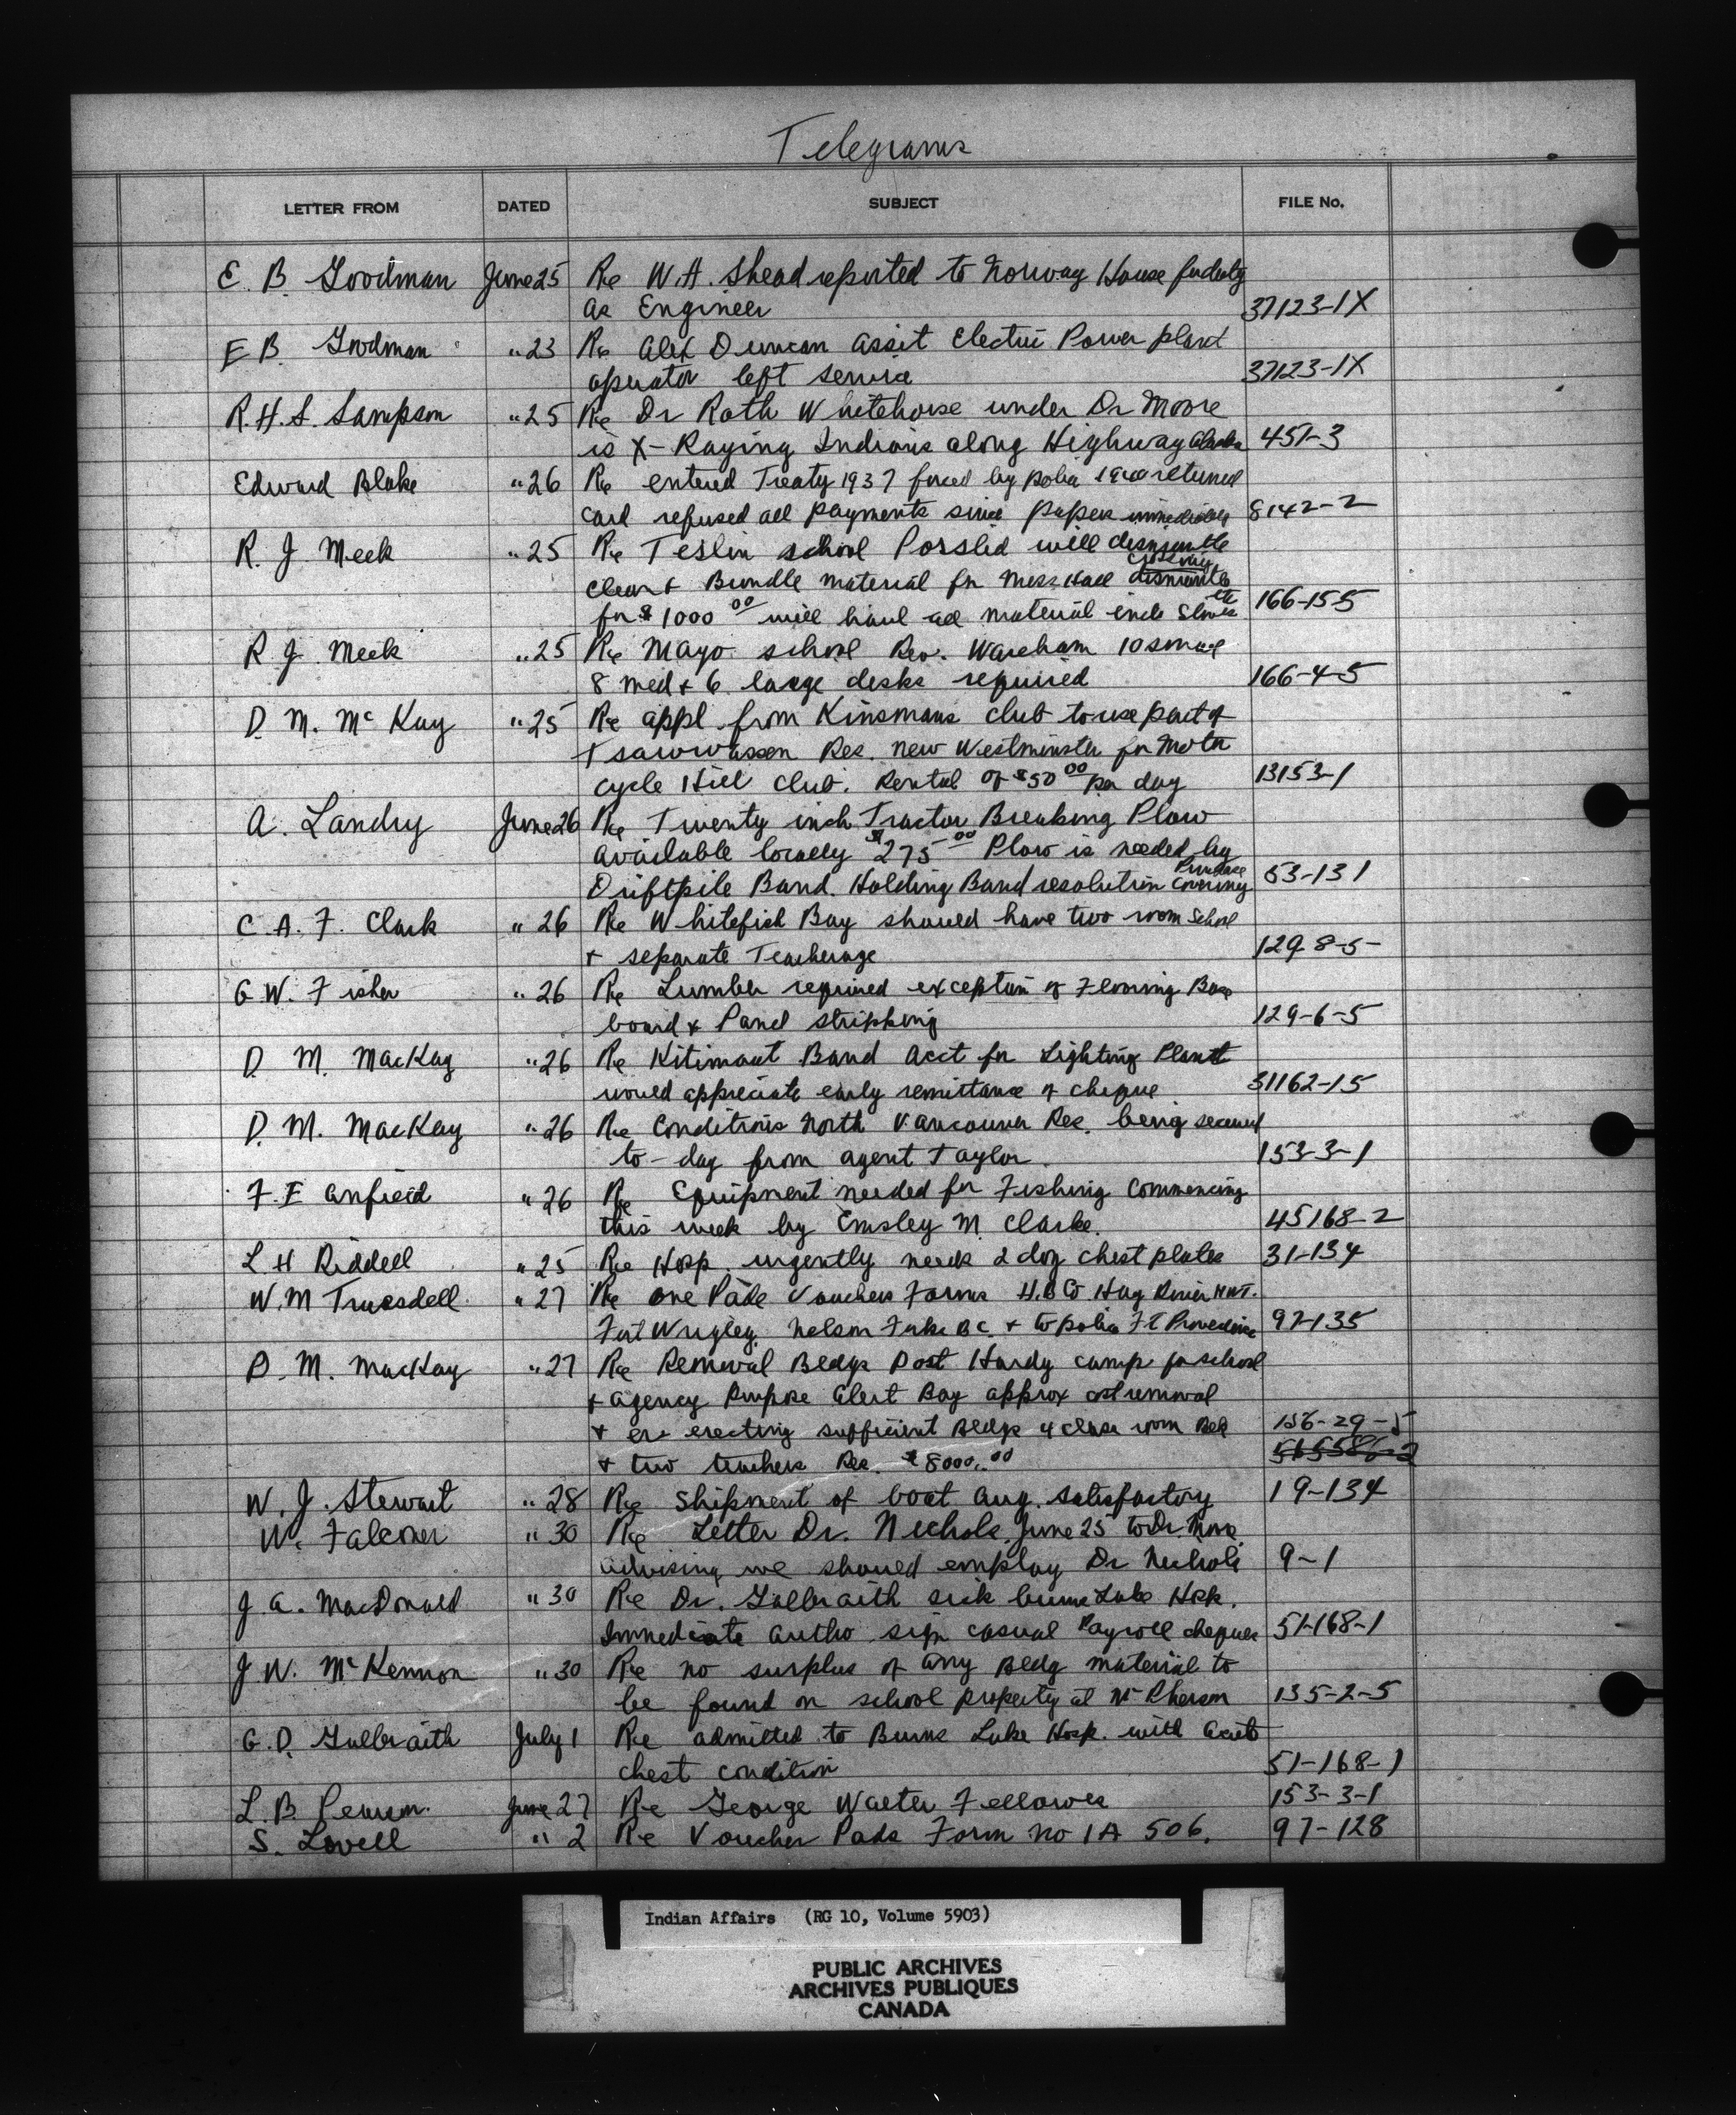 Telegrams
LETTER FROM DATED SUBJECT FILE No.
E. B. Goodman June 25 Re W.A. Shead reported to Norway House for duty
as Engineer 37123-1X
E B. Goodman " 23 Re Alex Duncan assit Electric Power plant
operator left service 37123-1X
R.H.S. Sampson " 25 Re Dr Roth Whitehorse under Dr Moore
is X-Raying Indians along Highway Alaska 451-3
Edward Blake " 26 Re entered Treaty 1937 forced by police returned
card refused all payments since papers 8142-2
R. J. Meek " 25 Re Teslin school Porsild will dismantle
clean & Bundle material for Mess Hall dismantle
for $1000 00 will haul all material incl Stoves etc 166-15-5
R J. Meek " 25 Re Mayo school Rev. Wareham 10 small
8 med & 6 large desks required 166-4-5
D. M. McKay " 25 Re appl from Kinsmans club to use part of
Tsawwassen Res. New Westminster for Motor
cycle Hill Club. Rental of $50 00 per day 13153-1
A. Landry June 26 Re Twenty inch Tractor Breaking Plow
available locally $275 00 Plow is needed by
Driftpile Band. Holding Band resolution covering Purchase 53-131
C. A. F. Clark " 26 Re Whitefish Bay should have two room School
& separate Teacherage 129-8-5
G W. Fisher " 26 Re Lumber required exception of Flooring Base
board & Panel stripping 129-6-5
D. M. MacKay " 26 Re Kitimaat Band acct for Lighting Plant
would appreciate early remittance of cheque 31162-15
D. M. MacKay " 26 Re Conditions North Vancouver Res. being secured
to-day from agent Taylor. 153-3-1
F. E Anfield " 26 Re Equipment needed for Fishing Commencing
this week by Emsley M. Clarke. 45168-2
L H Riddell " 25 Re Hosp. urgently needs 2 doz chest plates 31-134
W. M Truesdell " 27 Re one Pade Vouchers Forms H.B Co Hay River NWT.
Fort Wrigley Nelson Forks BC. & to police Ft Providence 97-135
D. M. MacKay " 27 Re Removal Bldgs Port Hardy camp for school
& agency Purpose Alert Bay approx cost removal
& er erecting sufficient Bldgs 4 class room Bldg 156-29-5
& two teachers Res. $8000.00
W. J. Stewart " 28 Re Shipment of boat Aug. satisfactory 19-134
W. Falconer " 30 Re Letter Dr. Nichols June 25 to Dr. Moore
advising we should employ Dr Nichols 9-1
J. A. MacDonald " 30 Re Dr. Galbraith sick burns Lake Hosp.
Immediate autho sign casual Payroll cheques 51-168-1
J. W. McKennon " 30 Re no surplus of any Bldg material to
be found on school property at McPherson 135-2-5
G. D. Galbraith July 1 Re admitted to Burns Lake Hosp. with acute
chest condition 51-168-1
L. B Pearson. June 27 Re George Walter Fellowes 153-3-1
S. Lovell " 2 Re Voucher Pads Form no IA 506. 97-128
Indian Affairs (RG 10, Volume 5903)
PUBLIC ARCHIVES
ARCHIVES PUBLIQUES
CANADA